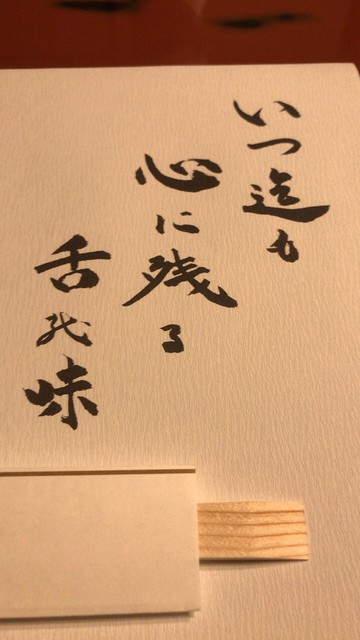 いつ迄も
心に残る
舌の味